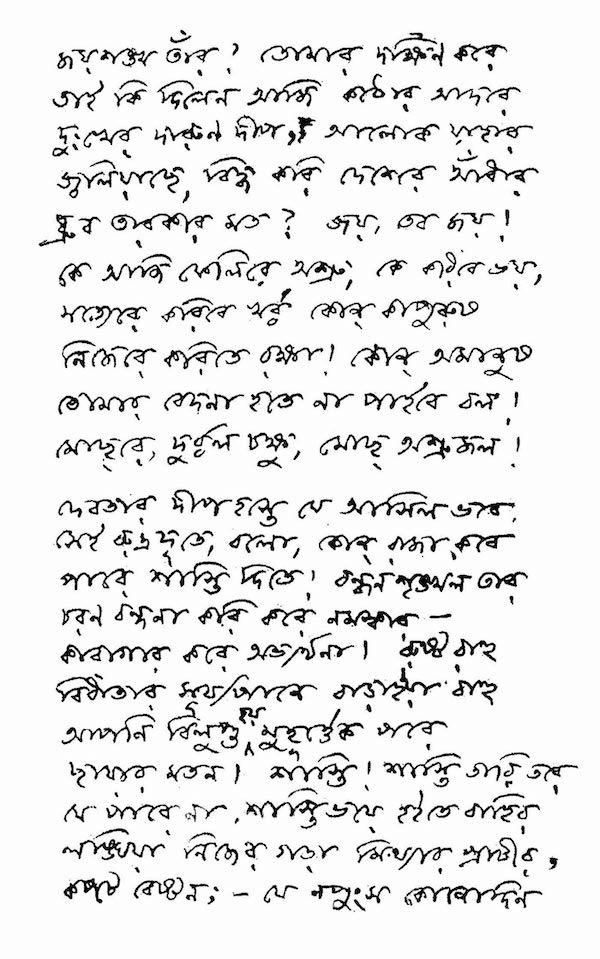 জয়শঙ্খ তাঁর? তোমার দক্ষিণ করে
তাই কি দিলেন আজি কঠোর আদরে
দুঃখের দারুণ দীপ, আলোক যাহার
জ্বলিয়াছে, বিদ্ধ করি দেশের আঁধার
ধ্রুব তারকার মত? জয়, তব জয়!
কে আজি ফেলিবে অশ্রু, কে করিবে ভয়,
সত্যেরে করিবে খর্ব্ব কোন্ কাপুরুষ
নিজেরে করিতে রক্ষা! কোন্ অমানুষ
তোমার বেদনা হতে না পাইবে বল!
মোছ্‌রে, দুর্ব্বল চক্ষু, মোছ্ অশ্রুজল!
দেবতার দীপ হস্তে যে আসিল ভবে
সেই রুদ্রদূতে, বলো, কোন্ রাজা কবে
পারে শাস্তি দিতে! বন্ধন শৃঙ্খল তার
চরণ বন্দনা করি করে নমস্কার —
কারাগার করে অভ্যর্থনা। রুষ্ট রাহু
বিধাতার সূর্য্যপানে বাড়াইয়া বাহু
আপনি বিলুপ্ত হয় মুহূর্ত্তেক পরে
ছায়ার মতন। শাস্তি! শাস্তি তারি তরে
যে পারে না শাস্তিভয়ে হইতে বাহির
লঙ্ঘিয়া নিজের গড়া মিথ্যার প্রাচীর,
কপট বেষ্টন; – যে নপুংস কোনোদিন